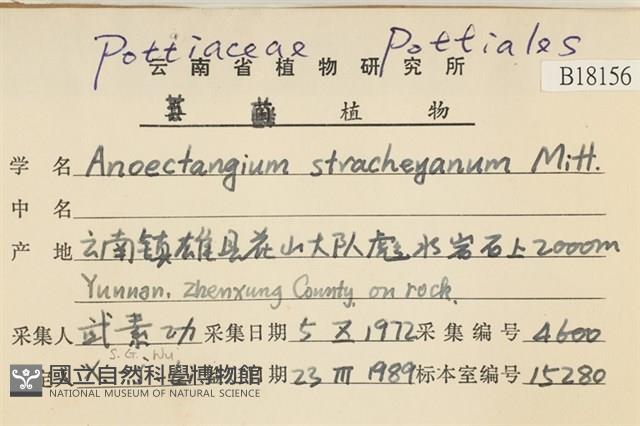 Pottiaceae Pottiales
云南省植物研究所
B18156
植物
学名 Anoectangium stracheyanum Mitt.
中名
产地 云南镇雄县花山大队彪水岩石上2000m
Yunnan. Zhenxung County, on rock.
采集人 武素功 采集日期 5 X 1972 采集编号 4600
S.G. Wu
日期 23 III 1989 标本室编号 15280
國立自然科學博物館
NATIONAL MUSEUM OF NATURAL SCIENCE